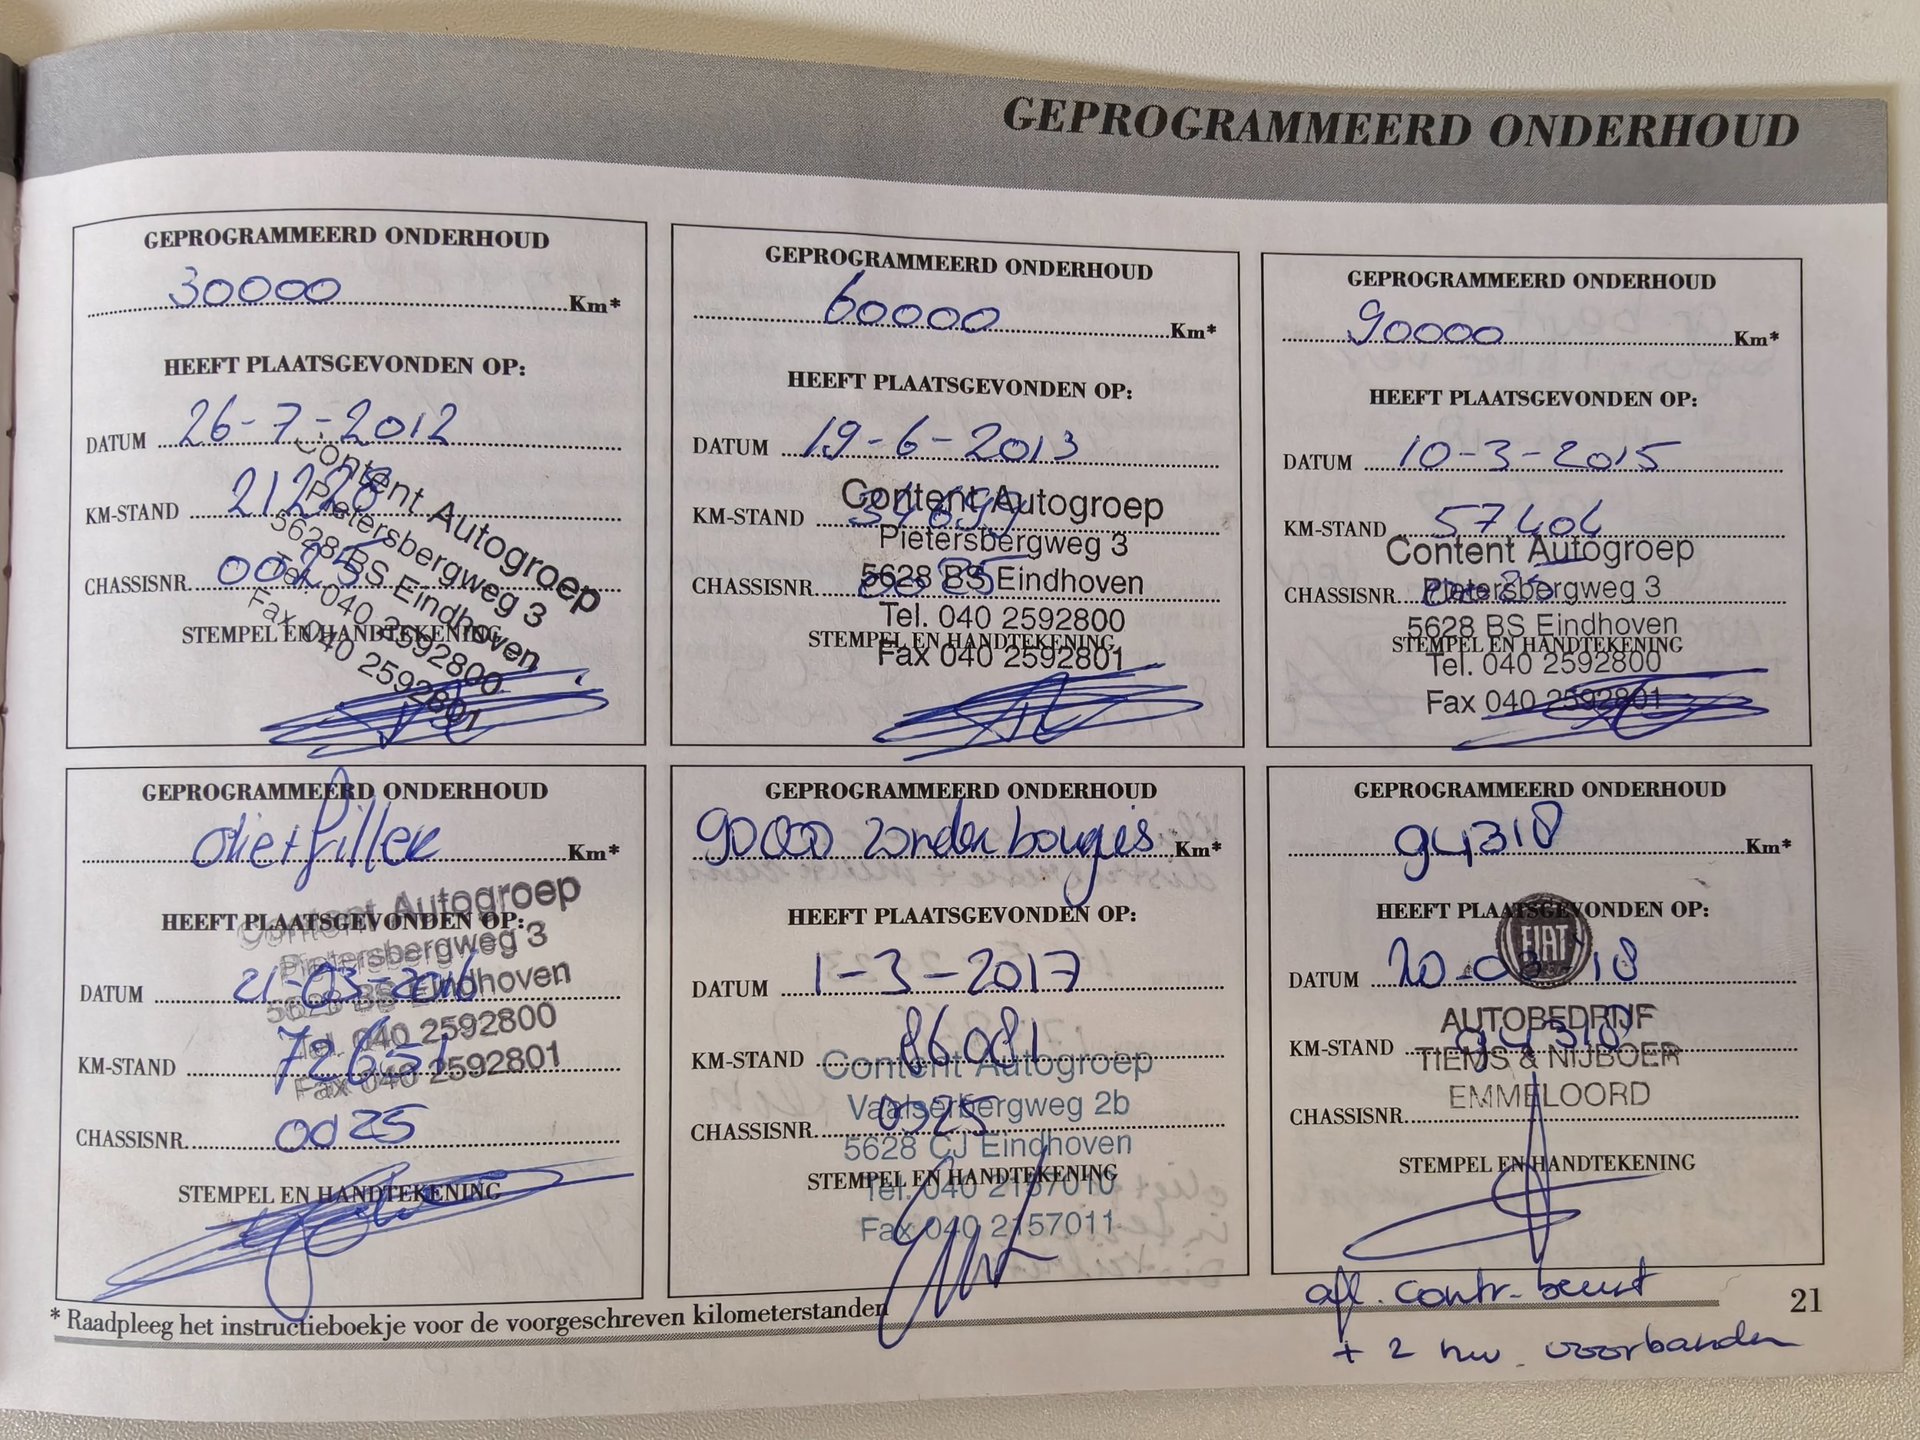 GEPROGRAMMEERD ONDERHOUD
GEPROGRAMMEERD ONDERHOUD
30000 Km*
HEEFT PLAATSGEVONDEN OP:
DATUM 26-7-2012
KM-STAND
CHASSISNR.
STEMPEL EN HANDTEKENING
Content Autogroep
Pietersbergweg 3
5628 BS Eindhoven
Tel. 040 2592800
Fax 040 2592801
GEPROGRAMMEERD ONDERHOUD
60000 Km*
HEEFT PLAATSGEVONDEN OP:
DATUM 19-6-2013
KM-STAND
CHASSISNR.
STEMPEL EN HANDTEKENING
Content Autogroep
Pietersbergweg 3
5628 BS Eindhoven
Tel. 040 2592800
Fax 040 2592801
GEPROGRAMMEERD ONDERHOUD
90000 Km*
HEEFT PLAATSGEVONDEN OP:
DATUM 10-3-2015
KM-STAND 57404
CHASSISNR.
STEMPEL EN HANDTEKENING
Content Autogroep
Pietersbergweg 3
5628 BS Eindhoven
Tel. 040 2592800
Fax 040 2592801
GEPROGRAMMEERD ONDERHOUD
Km*
HEEFT PLAATSGEVONDEN OP:
DATUM 21-03-2016
KM-STAND 72651
CHASSISNR. 0025
STEMPEL EN HANDTEKENING
Content Autogroep
Pietersbergweg 3
5628 BS Eindhoven
Tel. 040 2592800
Fax 040 2592801
GEPROGRAMMEERD ONDERHOUD
90000 zonder bougies Km*
HEEFT PLAATSGEVONDEN OP:
DATUM 1-3-2017
KM-STAND 86081
CHASSISNR. 0025
STEMPEL EN HANDTEKENING
Content Autogroep
Vaalserbergweg 2b
5628 CJ Eindhoven
Tel. 040 2157010
Fax 040 2157011
GEPROGRAMMEERD ONDERHOUD
94318 Km*
HEEFT PLAATSGEVONDEN OP:
FIAT
DATUM 20-03-'18
KM-STAND 94318
CHASSISNR.
STEMPEL EN HANDTEKENING
AUTOBEDRIJF
TIEMS & NIJBOER
EMMELOORD
afl. contr. beurt
+ 2 nw. voorbanden
* Raadpleeg het instructieboekje voor de voorgeschreven kilometerstanden
21